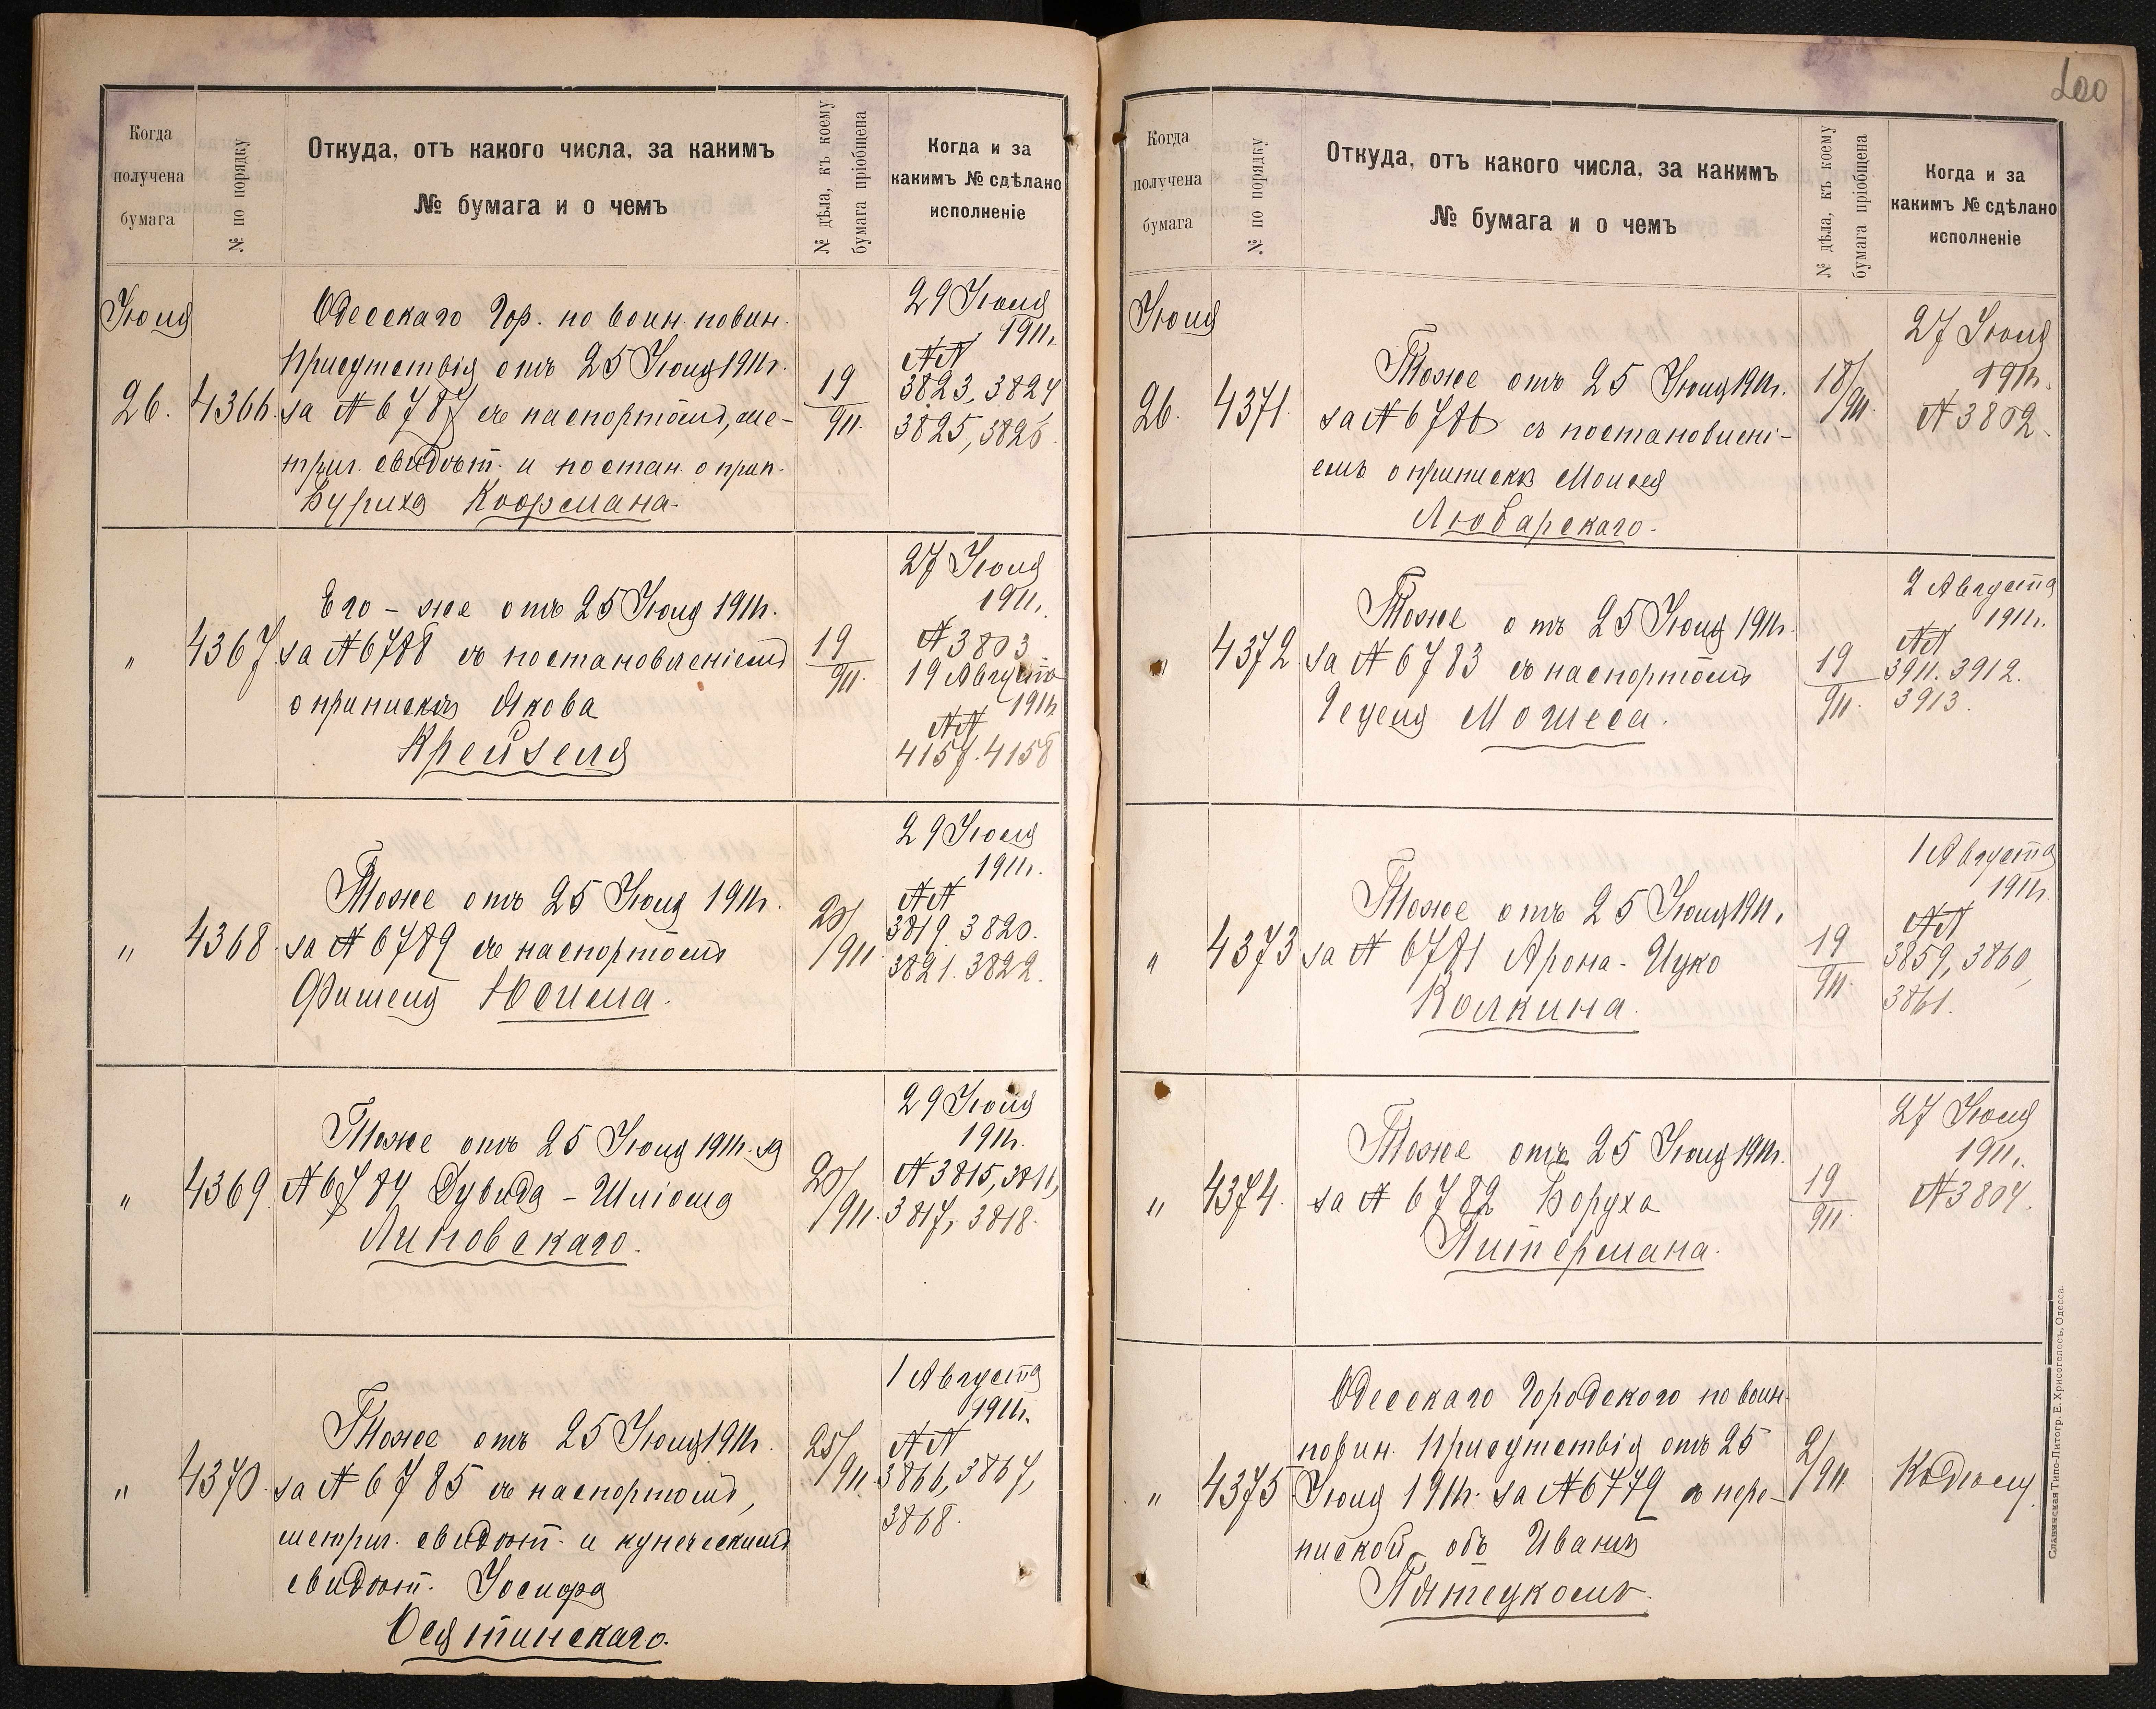 Когда
получена
бумага
№ по порядку
Откуда, отъ какого числа, за какимъ
№ бумага и о чемъ
№ дѣла, къ коему
бумага пріобщена
Когда и за
какимъ № сдѣлано
исполненіе
Іюля
26.
4366.
Одесскаго Гор. по воин. повин.
Присутствія отъ 25 Іюля 1911 г.
за № 6787 съ паспортомъ, ме-
трич. свидѣт. и постан. о прип.
Куфмана
19
911.
29 Іюля
1911 г.
№№
3823, 3824
3825, 3826.
"
4367
Его-же отъ 25 Іюля 1911 г.
за № 6788 съ постановленіемъ
о припискѣ Якова
Крейзеля
19
911.
27 Іюля
1911 г.
№ 3803
19 Августа
1911 г.
№№
4157. 4158
"
4368.
Тоже отъ 25 Іюля 1911 г.
за № 6789 съ паспортомъ
Фишеля Юсима.
20/911
29 Іюля
1911 г.
№№
3819. 3820.
3821. 3822.
"
4369.
Тоже отъ 25 Іюля 1911 г. за
№ 6784 Дувида-Шлiома
Липовскаго.
20/911.
29 Іюля
1911 г.
№ 3815, 3811,
3817, 3818.
"
4370.
Тоже отъ 25 Іюля 1911 г.
за № 6785 съ паспортомъ,
метрич. свидѣт. и купеческимъ
свидѣт. Іосифа
Осятинскаго.
25/911
1 Августа
1911 г.
№№
3866, 3867,
3868.
200
Когда
получена
бумага
№ по порядку
Откуда, отъ какого числа, за какимъ
№ бумага и о чемъ
№ дѣла, къ коему
бумага пріобщена
Когда и за
какимъ № сдѣлано
исполненіе
Іюля
26.
4371.
Тоже отъ 25 Іюля 1911 г.
за № 6786 съ постановлені-
емъ о припискѣ Моисея
Любарскаго.
18/911.
27 Іюля
1911 г.
№ 3802.
"
4372.
Тоже отъ 25 Іюля 1911 г.
за № 6783 съ паспортомъ
Гецеля Мошеса.
19
911.
2 Августа
1911 г.
№№
3911. 3912.
3913.
"
4373
Тоже отъ 25 Іюля 1911 г.
за № 6781 Арона-Ицко
Колкина.
19
911.
1 Августа
1911 г.
№№
3859, 3860,
3861.
"
4374.
Тоже отъ 25 Іюля 1911 г.
за № 6782 Боруха
Питермана.
19
911.
27 Іюля
1911 г.
№ 3804.
"
4375
Одесскаго Городского по воин.
повин. Присутствія отъ 25
Іюля 1911 г. за № 6779 съ пере-
пиской объ Иванѣ
Пятецкомъ.
2/911
Къ дѣлу.
Славянская Типо-Литогр. Е. Хрисогелосъ, Одесса.